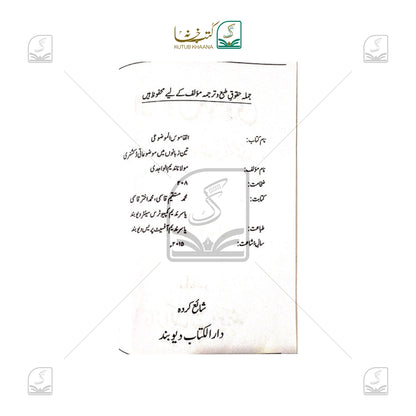 کتب خانہ
KUTUB KHAANA
جملہ حقوق طبع و ترجمہ مؤلف کے لیے محفوظ ہیں
نام کتاب: القاموس الموضوعی
تین زبانوں میں موضوعاتی ڈکشنری
نام مؤلف: مولانا ندیم الواجدی
ضخامت: ۴۰۸
کتابت: محمد مستقیم قاسمی، محمد اختر قاسمی
یاسر ندیم کمپیوٹرس سینٹر دیوبند
طباعت: یاسر ندیم آفسیٹ پریس دیوبند
سال اشاعت: ۲۰۱۵ء
شائع کردہ
دار الکتاب دیوبند